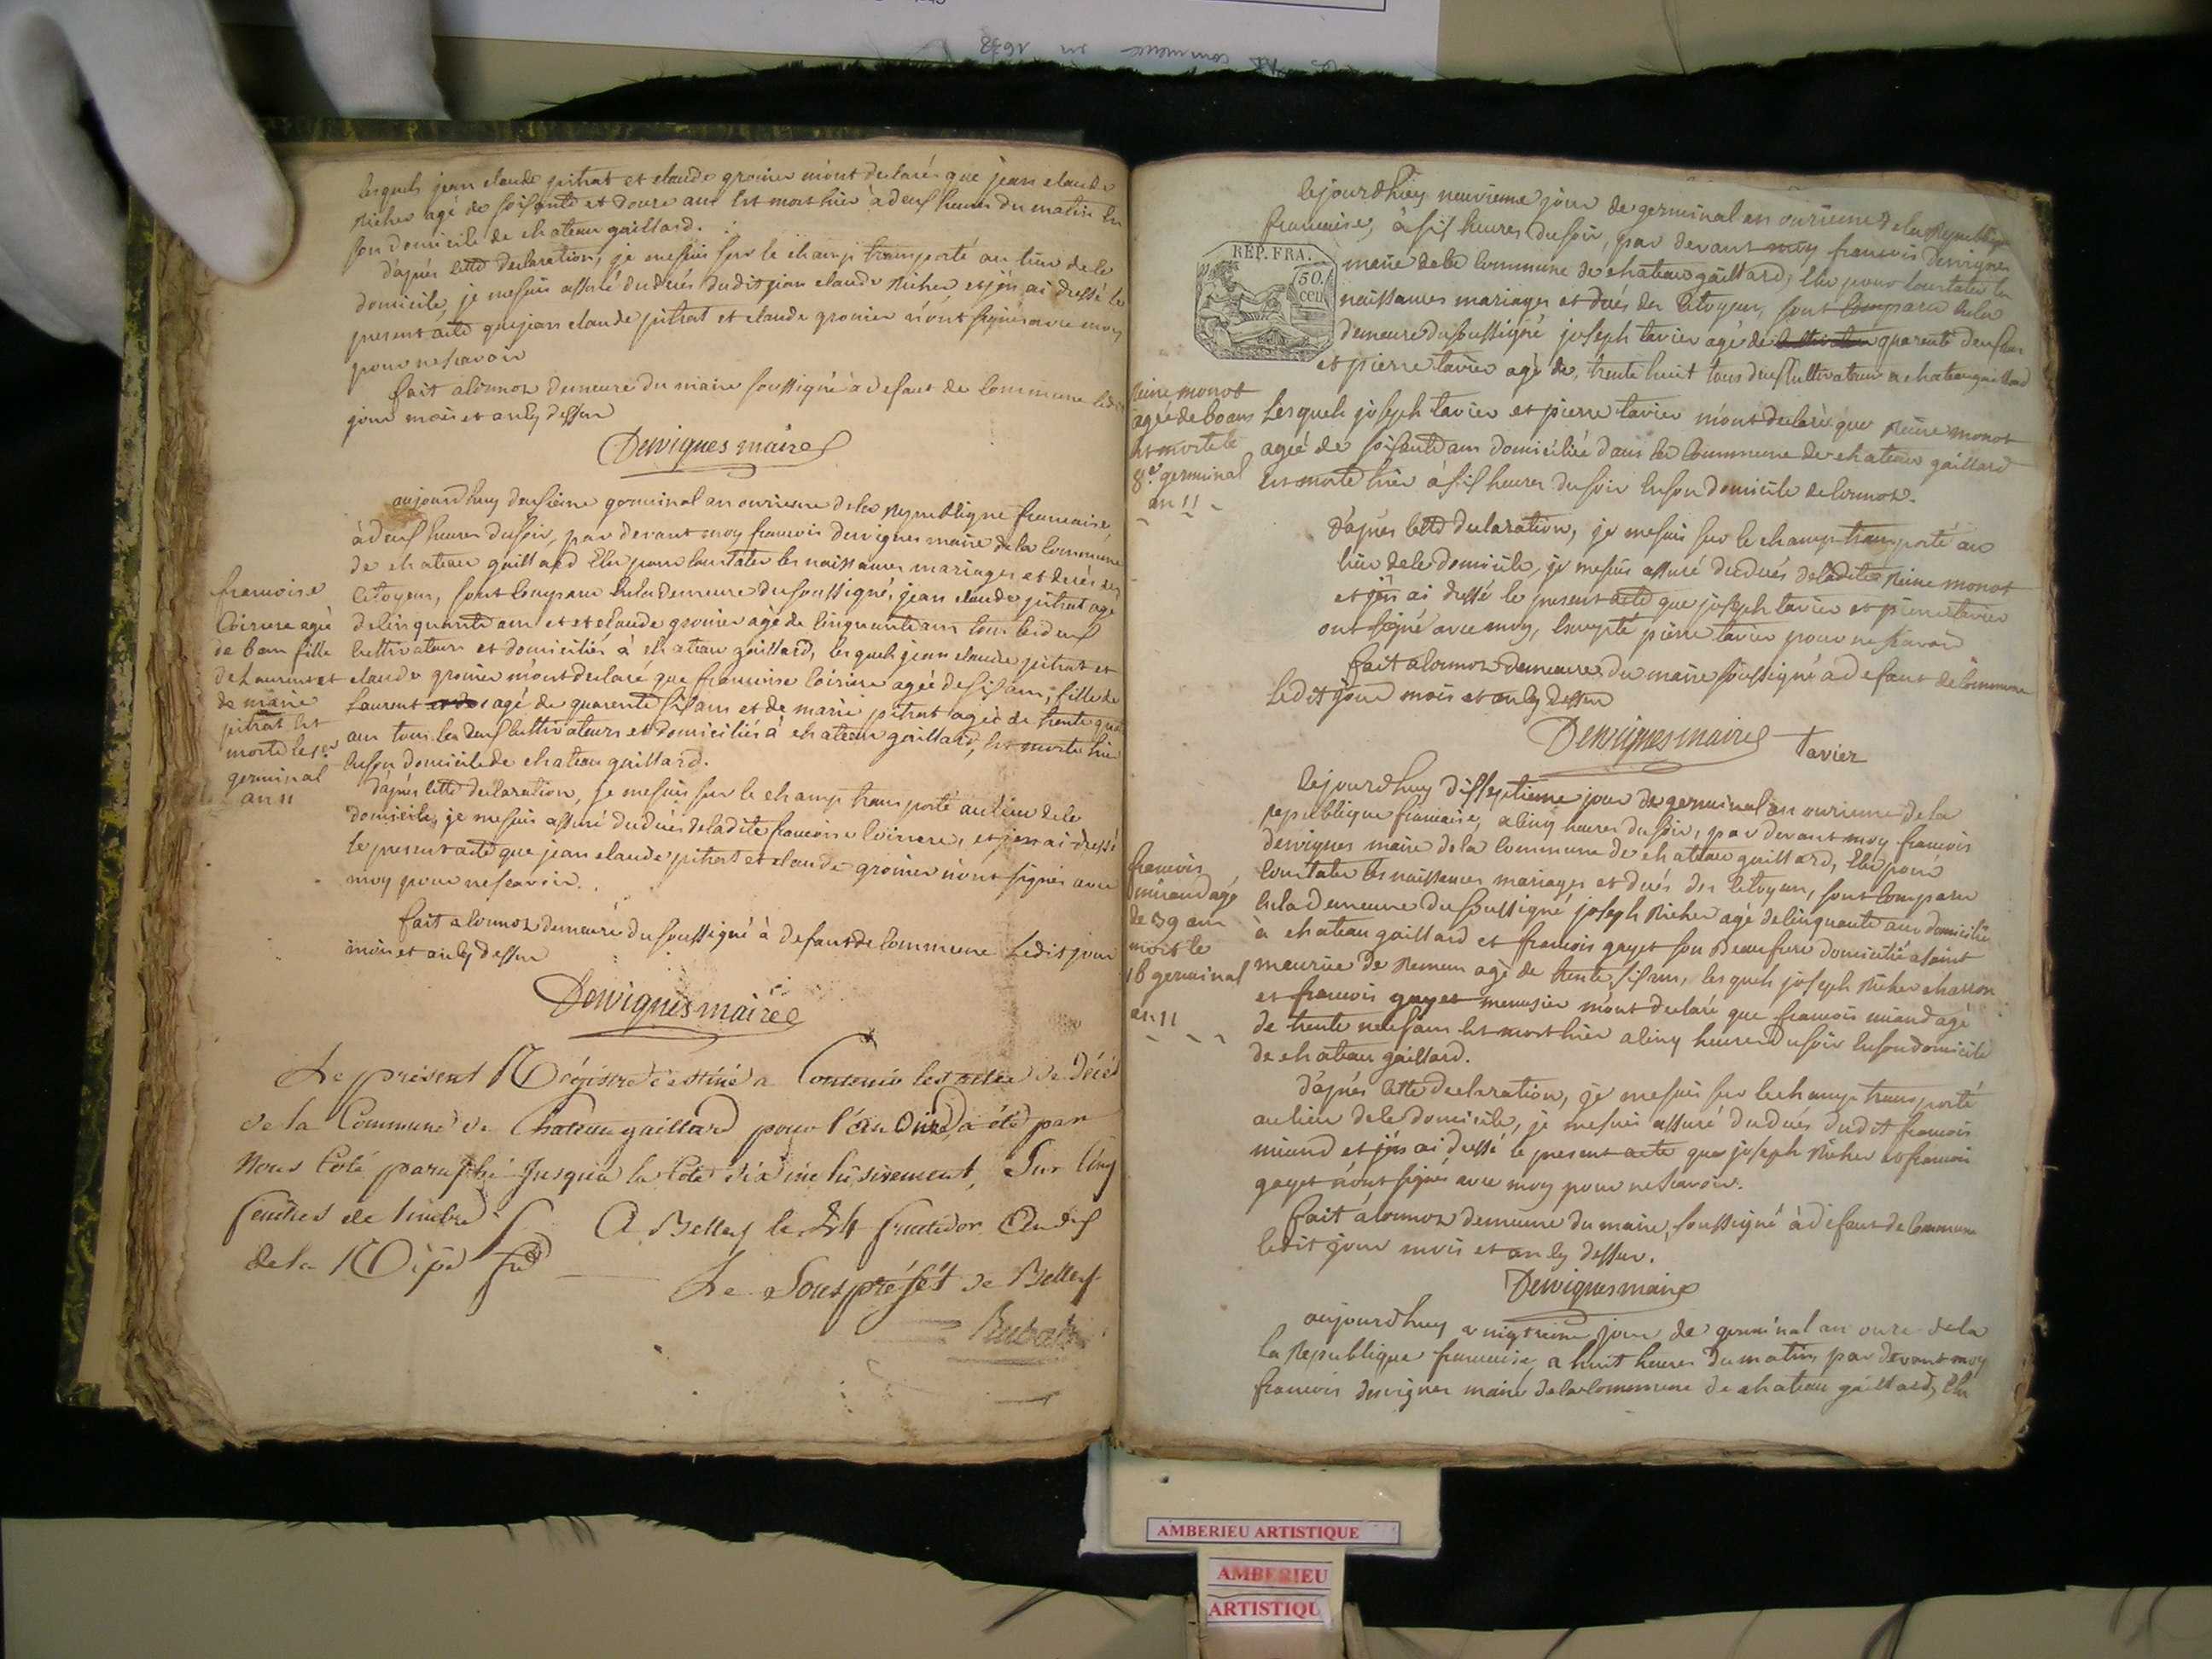 lesquels jean claude pitrat et claude gronier m'ont declarés que jean claude
Richer agé de soisante et douze ans est mort hier à deus heures du matin en
son domicile de chateau gaillard.
d'aprés cette declaration, je me suis sur le champ transporté au lieu de ce
domicile, je me suis assuré du dués dudit jean claude Richer et j'en ai dressé le
present acte que jean claude pitrat et claude gronier n'ont signés avec moy
pour ne scavoir
fait a cormoz demeure du maire soussigné à defaut de commune ledit
jour mois et an cy dessus
Dervignes maire
francoise
Coirere agée
de 6 an fille
de Laurent et
de marie
pitrat est
morte le 1er
germinal
an 11
aujourdhuy deusieme germinal an onzieme de la Republique francaise,
à deus heures du soir, par devant moy francois dervignes maire de la commune
de chateau gaillard Elu pour constater les naissances mariages et dués des
citoyens, sont comparu en la demeure du soussigné, jean claude pitrat agé
de cinquante ans et et claude gronier agé de cinquante ans tous les deus
cultivateurs et domiciliés à chateau gaillard, lesquels jean claude pitrat et
claude gronier m'ont declaré que francoise coirere agée de sis ans, fille de
Laurent agé de quarente sis ans et de marie pitrat agée de trente quatre
ans tous les deus cultivateurs et domiciliés à chateau gaillard, est morte hier
en son domicile de chateau gaillard.
d'aprés cette declaration, je me suis sur le champ transporté au lieu de ce
domicile, je me suis assuré du dués de ladite francoise coirere, et j'en ai dressé
le present acte que jean claude pitrat et claude gronier n'ont signés avec
moy pour ne scavoir.
fait a cormoz demeure du soussigné à defaut de commune Ledit jour
mois et an cy dessus
Dervignes maire
Le présent Régistre destiné a Contenir les actes de Décès
de la Commune de Chateaugaillard pour l'an Onze, a été par
Nous Coté paraphé Jusqu'à la Cote dix inclusivement, Sur Cinq
feuilles de timbre
de la Rép. fse
A Belley le 24 fructidor An dix
Le Souspréfét de Belley
Rubat
REP. FRA.
50.
cen
Cejourdhuy neuvieme jour de germinal en onzieme de la Republique
francaise, à sis heures du soir, par devant moy francois dervignes
maire de la commune de chateau gaillard, Elu pour constater les
naissances mariages et dués des citoyens, sont comparu en la
demeure du soussigné joseph tavier agé de quarente deus ans
et pierre tavier agé de, trente huit tous deus cultivateurs a chateau gaillard
Reine monot
agée de 60 ans
est morte le
8e germinal
an 11
Lesquels joseph tavier et pierre tavier m'ont declaré que Reine monot
agée de soisante ans domiciliée dans la commune de chateau gaillard
est morte hier à sis heures du soir en son domicile de cormoz.
D'aprés cette declaration, je me suis sur le champ transporté au
lieu de ce domicile, je me suis assuré du dués de ladite Reine monot
et j'en ai dressé le present acte que joseph tavier et pierre tavier
ont signé avec moy, Excepté pierre tavier pour ne scavoir
fait a cormoz demeure du maire soussigné à defaut de commune
Ledit jour mois et an cy dessus
Dervignes maire
tavier
francois
mirand agé
de 39 ans
mort le
16 germinal
an 11
Cejourdhuy disseptieme jour de germinal an onzieme de la
republique francaise, a cinq heures du soir, par devant moy francois
dervignes maire de la commune de chateau gaillard, Elu pour
constater les naissances mariages et dués des citoyens, sont comparu
en la demeure du soussigné joseph Richer agé de cinquante ans domicilié
à chateau gaillard et francois gayet son beaufrere domicilié a saint
maurice de Remens agé de trente sis ans, lesquels joseph Richer charron
et francois gayet menusier m'ont declaré que francois miand agé
de trente neuf ans est mort hier a cinq heures du soir en son domicile
de chateau gaillard.
d'aprés cette declaration, je me suis sur le champ transporté
au lieu de ce domicile, je me suis assuré du dués dudit francois
miand et j'en ai dressé le present acte que joseph Richer et francois
gayet n'ont signés avec moy pour ne scavoir.
fait à cormoz demeure du maire, soussigné à defaut de commune
ledit jour mois et an cy dessus.
Dervignes maire
aujourdhuy jour de germinal an onze de la
la Republique francaise, a huit heures du matin, par devant moy
francois dervignes maire de la commune de chateau gaillard, Elu
AMBERIEU ARTISTIQUE
AMBERIEU
ARTISTIQU